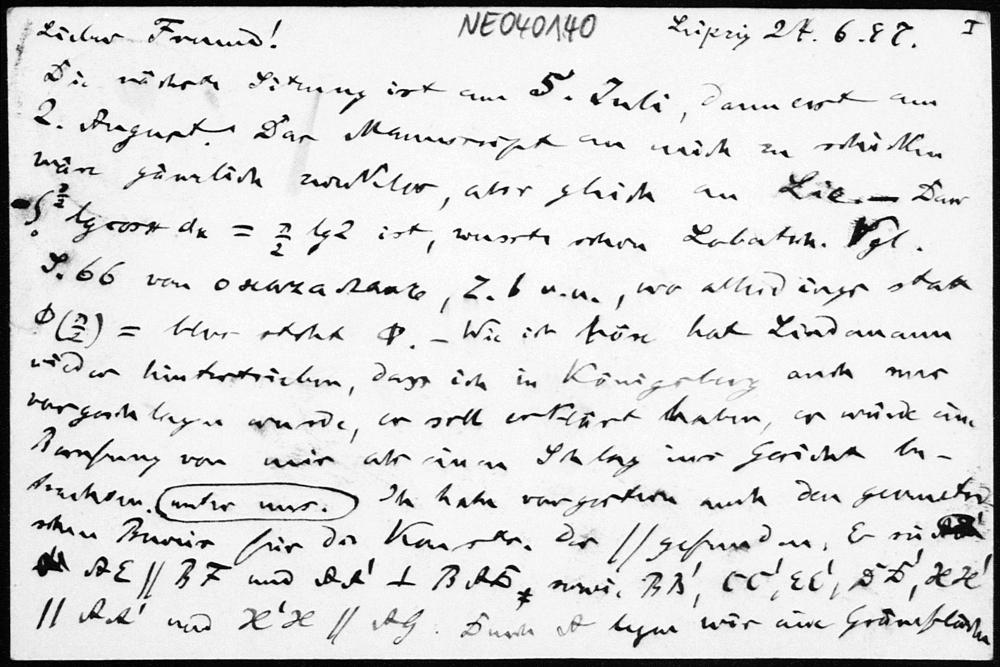 Lieber Freund! NE040140 Leipzig 27. 6. 97. I
Die nächste Sitzung ist am 5. Juli, dann erst am
2. August. Das Manuscript an mich zu schicken
wäre gänzlich zwecklos, aber gleich an Lie. — Dass
∫₀^{π/2} lg cos x dx = π/2 lg 2 ist, wusste schon Lobatsch. Vgl.
S. 66 von , Z. 6 v. u., wo allerdings statt
Φ(π/2) = blos steht Φ. – Wie ich höre hat Lindemann
wieder hintertrieben, dass ich in Königsberg auch nur
vorgeschlagen wurde, er soll erklärt haben, er würde eine
Berufung von mir als einen Schlag ins Gesicht be-
trachten. unter uns. Ich habe vorgestern auch den geometri
schen Beweis für die Konstr. der // gefunden. Es sei
AE // BF und AA' ⊥ BAD, sowie BB', CC', EE', DD', HH'
// AA' und H'H // AG. Durch A legen wir eine Grenzfläche